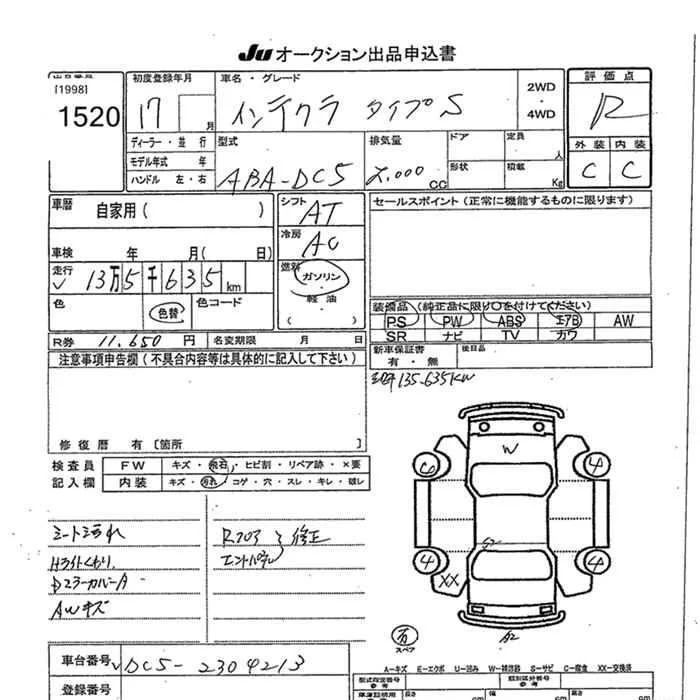 Ju オークション出品申込書
出品番号
[1998]
1520
初度登録年月
17 月
車名・グレード
インテグラ タイプS
2WD
・
4WD
評価点
R
外装 内装
C C
ディーラー・並行
モデル年式 年
ハンドル 左・右
型式
ABA-DC5
排気量
2.000 CC
ドア
形状
定員 人
積載 Kg
車歴
自家用( )
車検 年 月( 日)
走行
13万5千635km
色
色替
色コード
シフト
AT
冷房
AC
燃料
ガソリン
・
軽油
( )
R券 11,650 円
名変期限 月 日
セールスポイント(正常に機能するものに限ります)
装備品(純正品に限り○を付けてください)
PS PW ABS エアB AW
SR ナビ TV カワ
新車保証書
有・無
後日品
135.635KM
注意事項申告欄(不具合内容等は具体的に記入して下さい)
修復歴 有[箇所 ]
検査員
記入欄
FW キズ・飛石・ヒビ割・リペア跡・×要
内装 キズ・汚れ・コゲ・穴・スレ・キレ・破レ
シート汚れ
Hライトくもり
AWキズ
修正
W
4
4
4
XX
A2
有
スペア
A-キズ E-エクボ U-凹み W-補修跡 S-サビ C-腐食 XX-交換済
車台番号 DC5-2304213
登録番号
型式指定番号
参考
類別区分番号
参考
長さ
幅
高さ